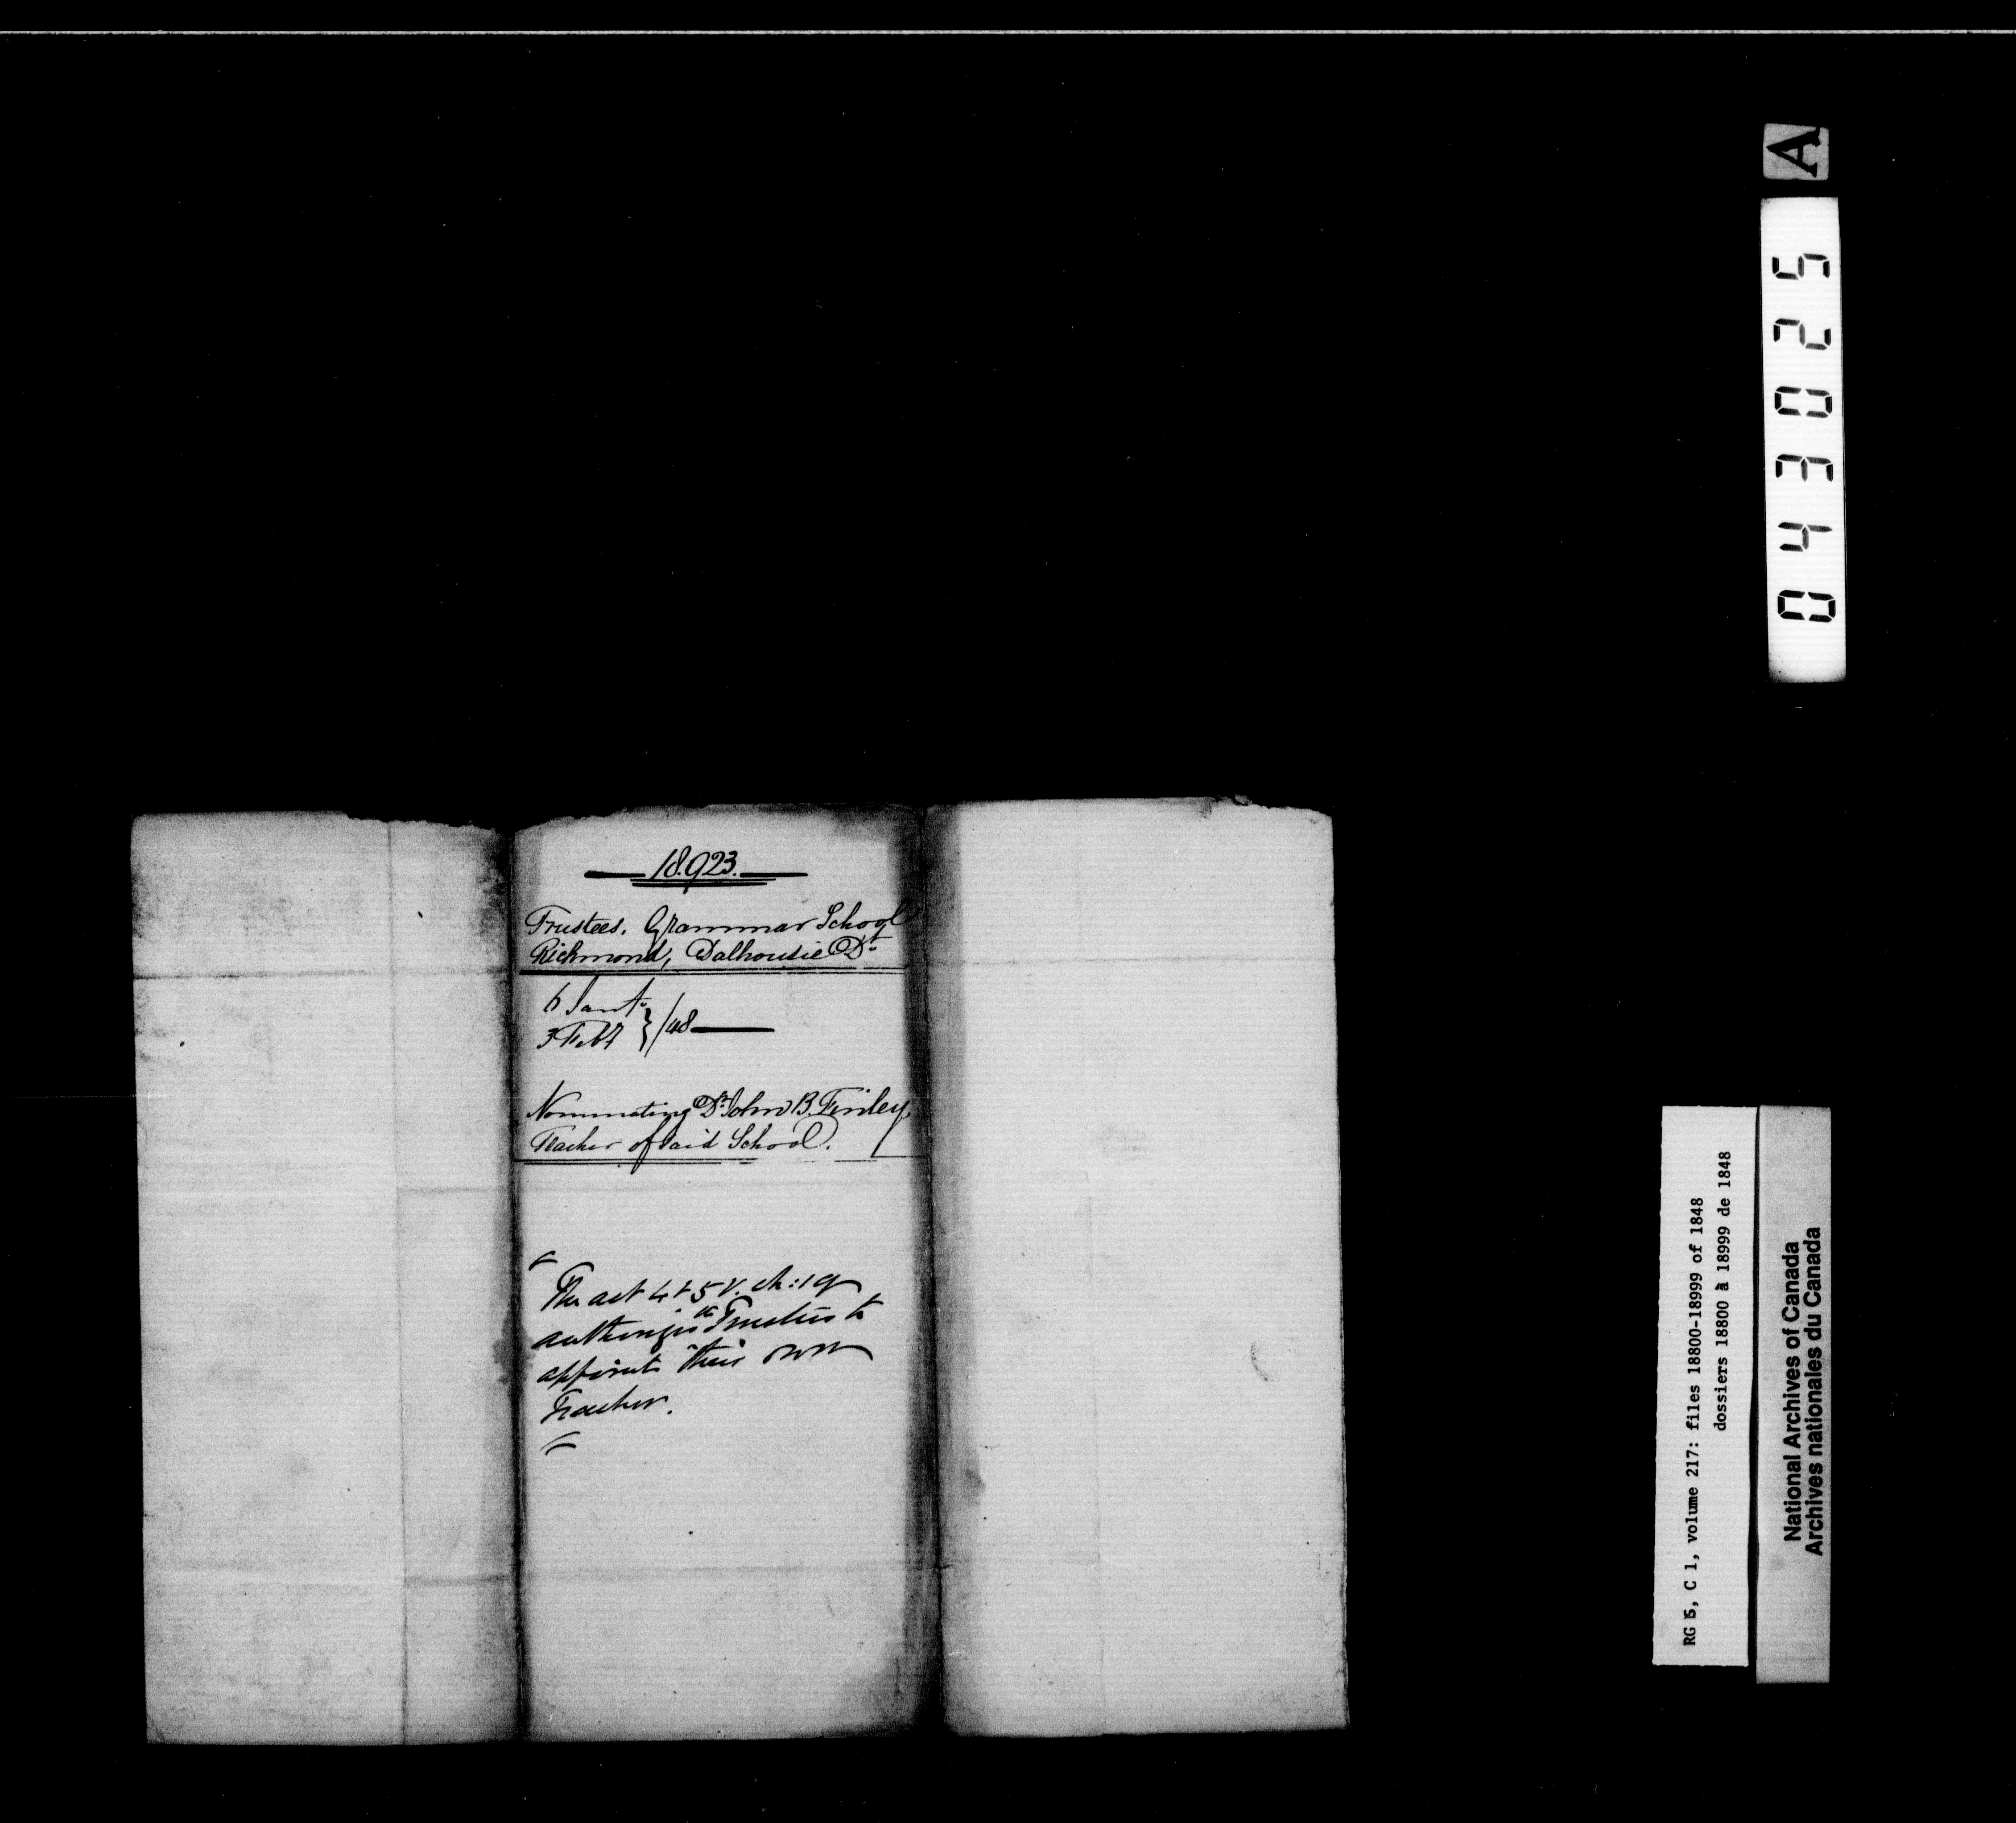 18.923.
Trustees. Grammar School
Richmond, Dalhousie Dt.
6 Jany.
3 Feby } /48
Nominating Dr. John B. Finley,
Teacher of said School.
"
The act 4 & 5 V. ch: 19
authorizes the Trustees to
appoint their own
Teacher.
"
A
043025
RG 5, C 1, volume 217: files 18800-18999 of 1848
dossiers 18800 à 18999 de 1848
National Archives of Canada
Archives nationales du Canada